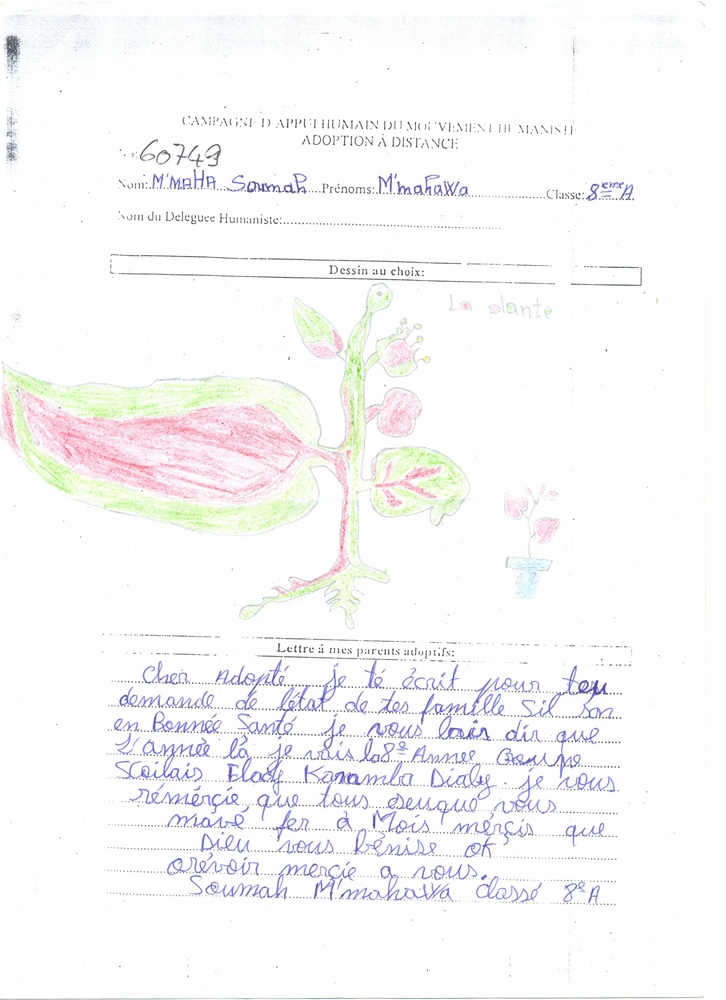 CAMPAGNE D'APPUI HUMAIN DU MOUVEMENT HUMANISTE
ADOPTION À DISTANCE
No: 60749
Nom: M'MAHA Soumah Prénoms: M'mahawa Classe: 8ème A
Nom du Deleguee Humaniste:
Dessin au choix:
La plante
Lettre à mes parents adoptifs:
Cher Adopté je té écrit pour
demande de l'état de tes famille Sil son
en Bonnée Santé je vous dir que
L'année là je vais la 8e Annee Goupe
Scoilais Elady Karamba Diaby. je vous
rémérçié que tous seuque vous
mavé fer à Mois mérçis que
Dieu vous bénise ok
orévoir merçie a vous.
Soumah M'mahawa classé 8e A